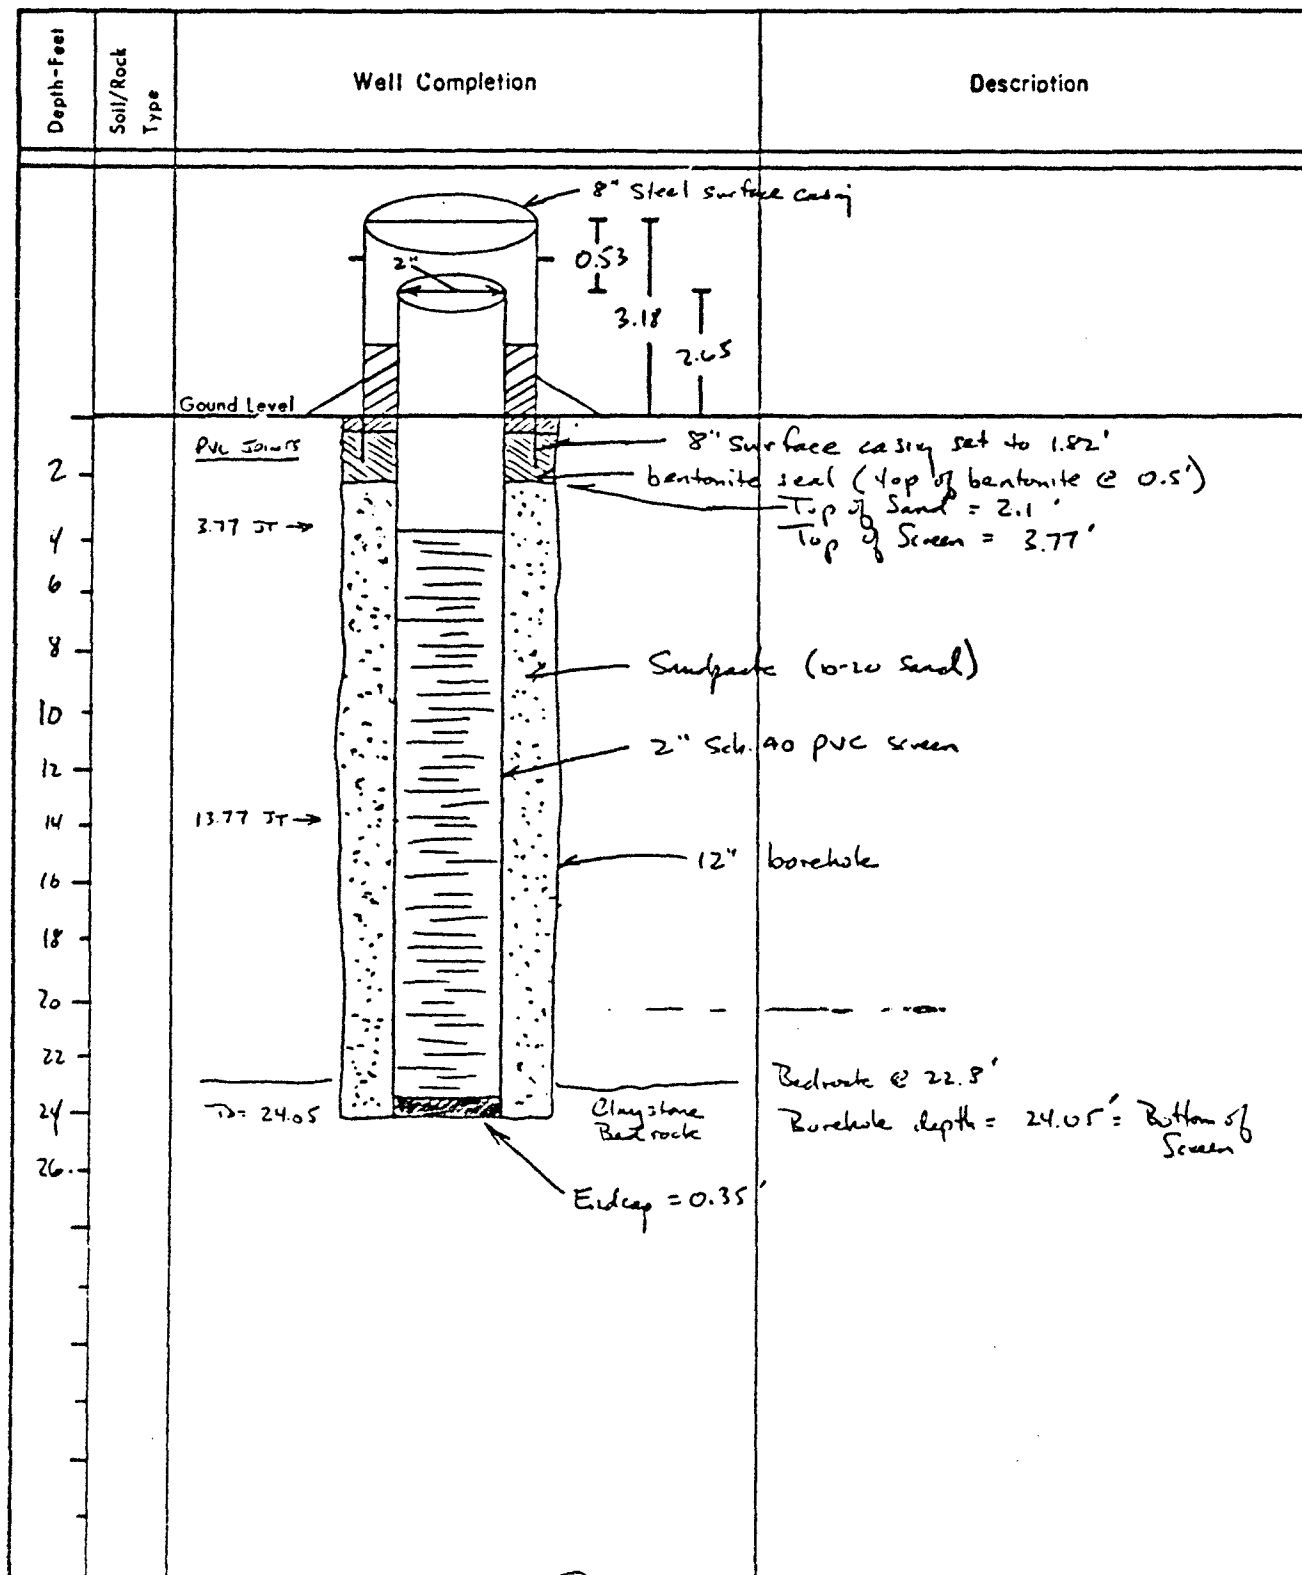 Depth-Feet
Soil/Rock
Type
Well Completion
Description
8" Steel surface casing
0.53
2"
3.18
2.65
Gound Level
PVC JOINTS
8" surface casing set to 1.82'
2
bentonite seal (top of bentonite @ 0.5')
Top of Sand = 2.1'
3.77 JT →
4
Top of Screen = 3.77'
6
8
Sandpack (10-20 Sand)
10
2" Sch. 40 PVC screen
12
13.77 JT →
14
12" borehole
16
18
20
22
Bedrock @ 22.8'
TD= 24.05
24
Claystone
Bedrock
Borehole depth = 24.05' = Bottom of
Screen
26
Endcap = 0.35'